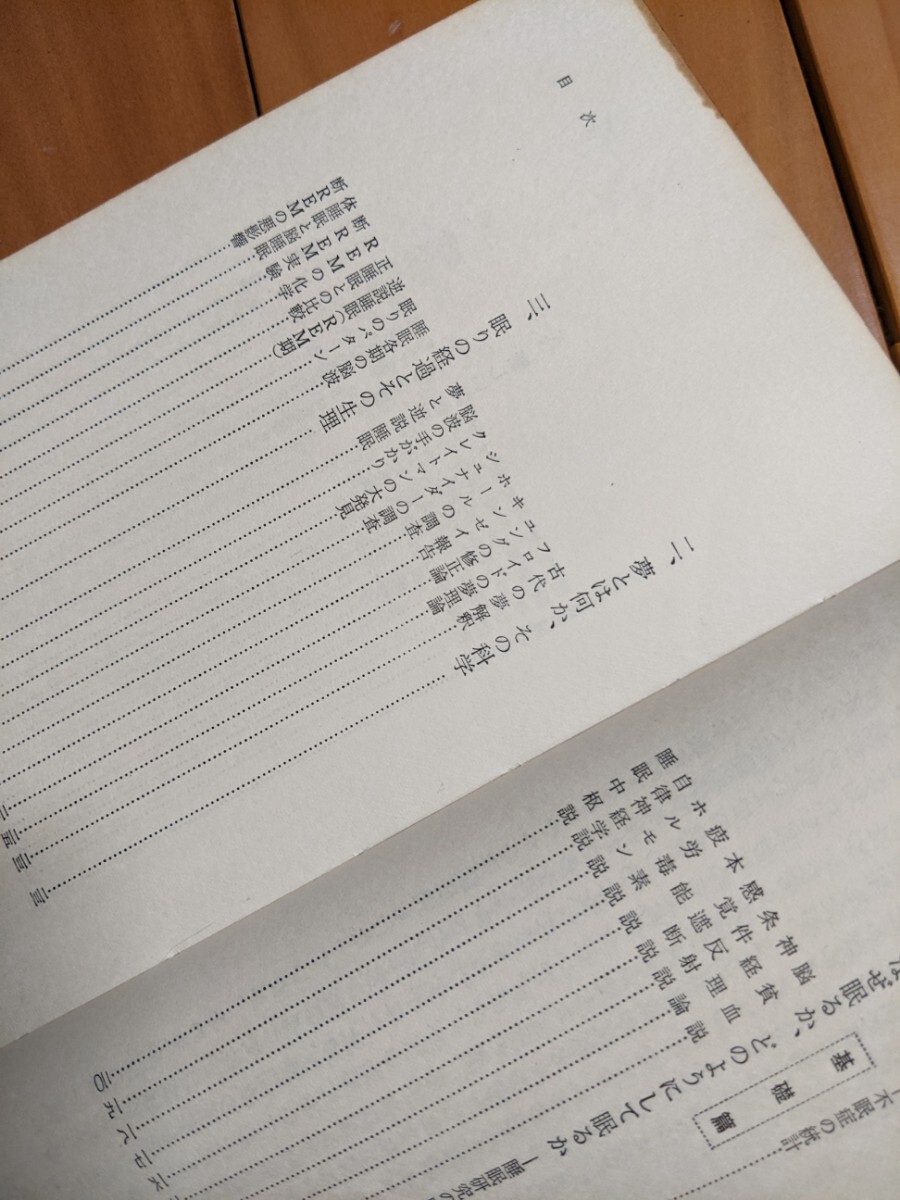 不眠症の統計
基礎篇
なぜ眠るか、どのようにして眠るか
—睡眠研究の
脳貧血説
神経理論
条件反射説
感覚遮断説
本能説
疲労毒素説
ホルモン説
自律神経学説
睡眠中枢説
目次
二、夢とは何か、その科学
古代の夢解釈
フロイトの夢理論
ユングの修正論
キンゼイ報告
ホールの調査
シュナイダーの調査
クレイトマンの大発見
脳波の手がかり
夢と逆説睡眠
三、眠りの経過とその生理
睡眠各期の脳波
眠りのパターン
逆説睡眠(REM期)
正睡眠との比較
REMの化学
断REM実験
体睡眠と脳睡眠
断REMの悪影響